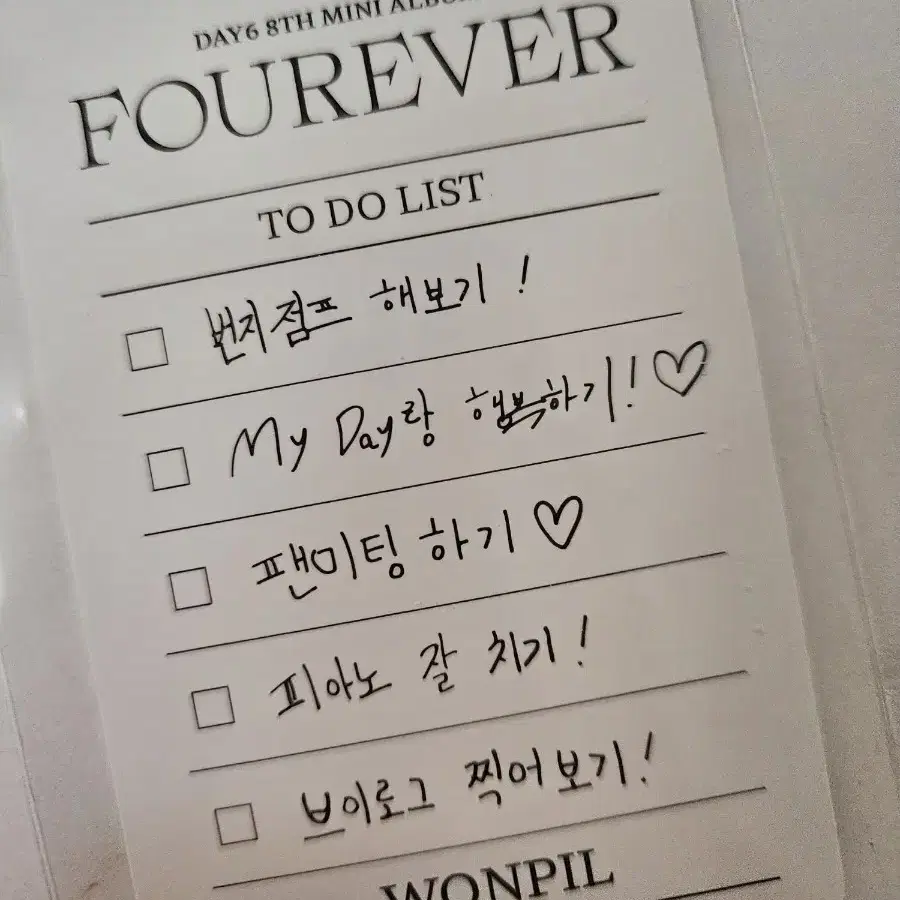 DAY6 8TH MINI ALBUM
FOUREVER
TO DO LIST
번지점프 해보기 !
My Day랑 행복하기! ♡
팬미팅 하기 ♡
피아노 잘 치기 !
브이로그 찍어보기 !
WONPIL